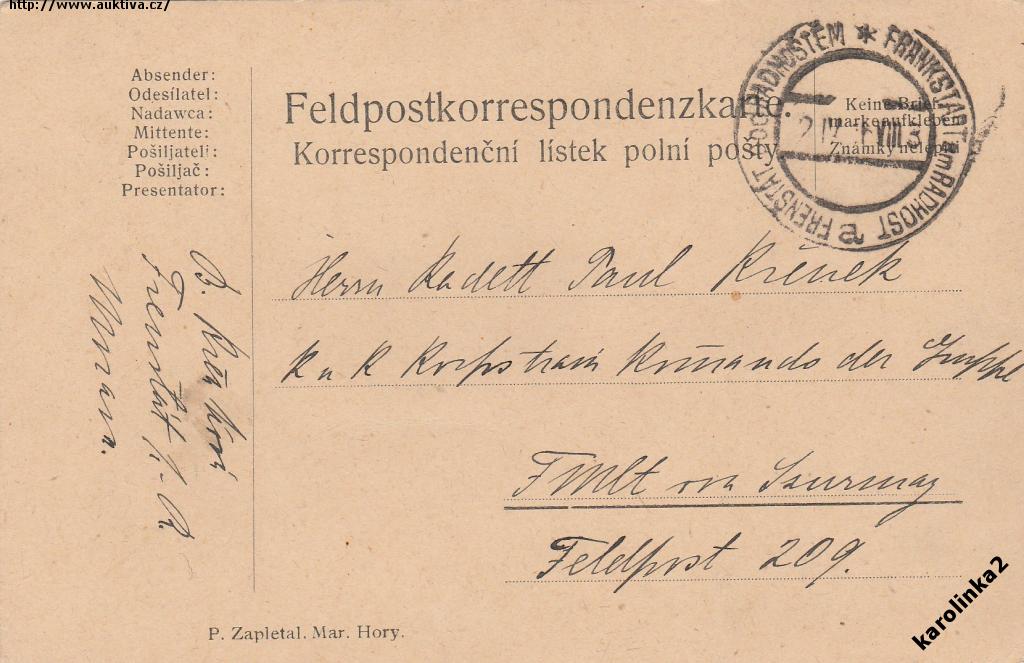 http://www.auktiva.cz/
Absender:
Odesílatel:
Nadawca:
Mittente:
Pošiljatelj:
Pošiljač:
Presentator:
Feldpostkorrespondenzkarte.
Korrespondenční lístek polní pošty
Keine Brief-
marke aufkleben
Známky nelepit
FRENŠTÁT POD RADHOŠTĚM * FRANKSTADT AM RADHOST
Herrn Kadett Paul Křenek
k u k Korpstrain Kommando der Gruppe
FMlt von Szurmay
Feldpost 209.
B.
Frenštát p. R.
Morav.
P. Zapletal. Mar. Hory.
karolinka2